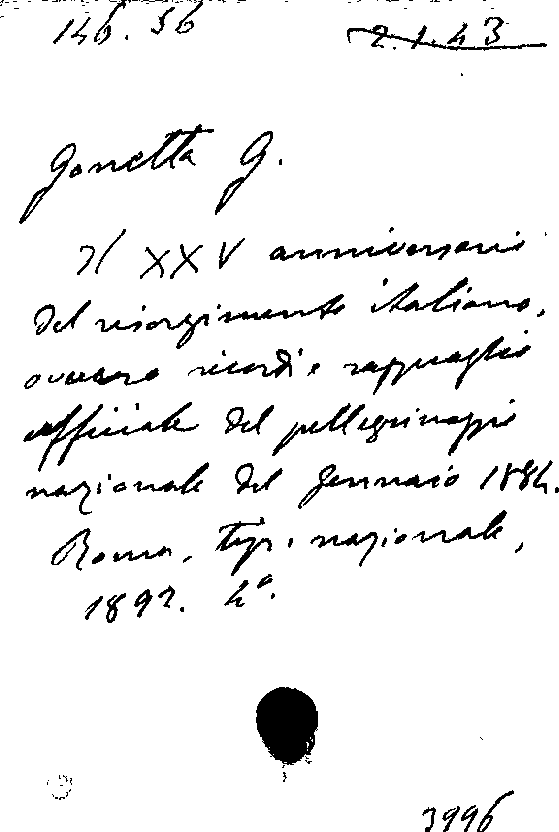 146. 56 2.1.43
Gonetta G.
Il XXV anniversario
del risorgimento italiano,
ovvero ricordi e ragguaglio
ufficiale del pellegrinaggio
nazionale del gennaio 1884.
Roma, tip. nazionale,
1892. 4°.
3996